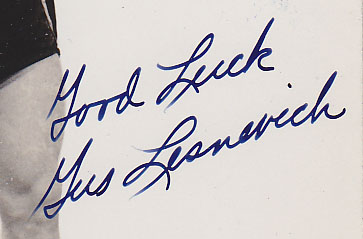 Good Luck
Gus Lesnevich